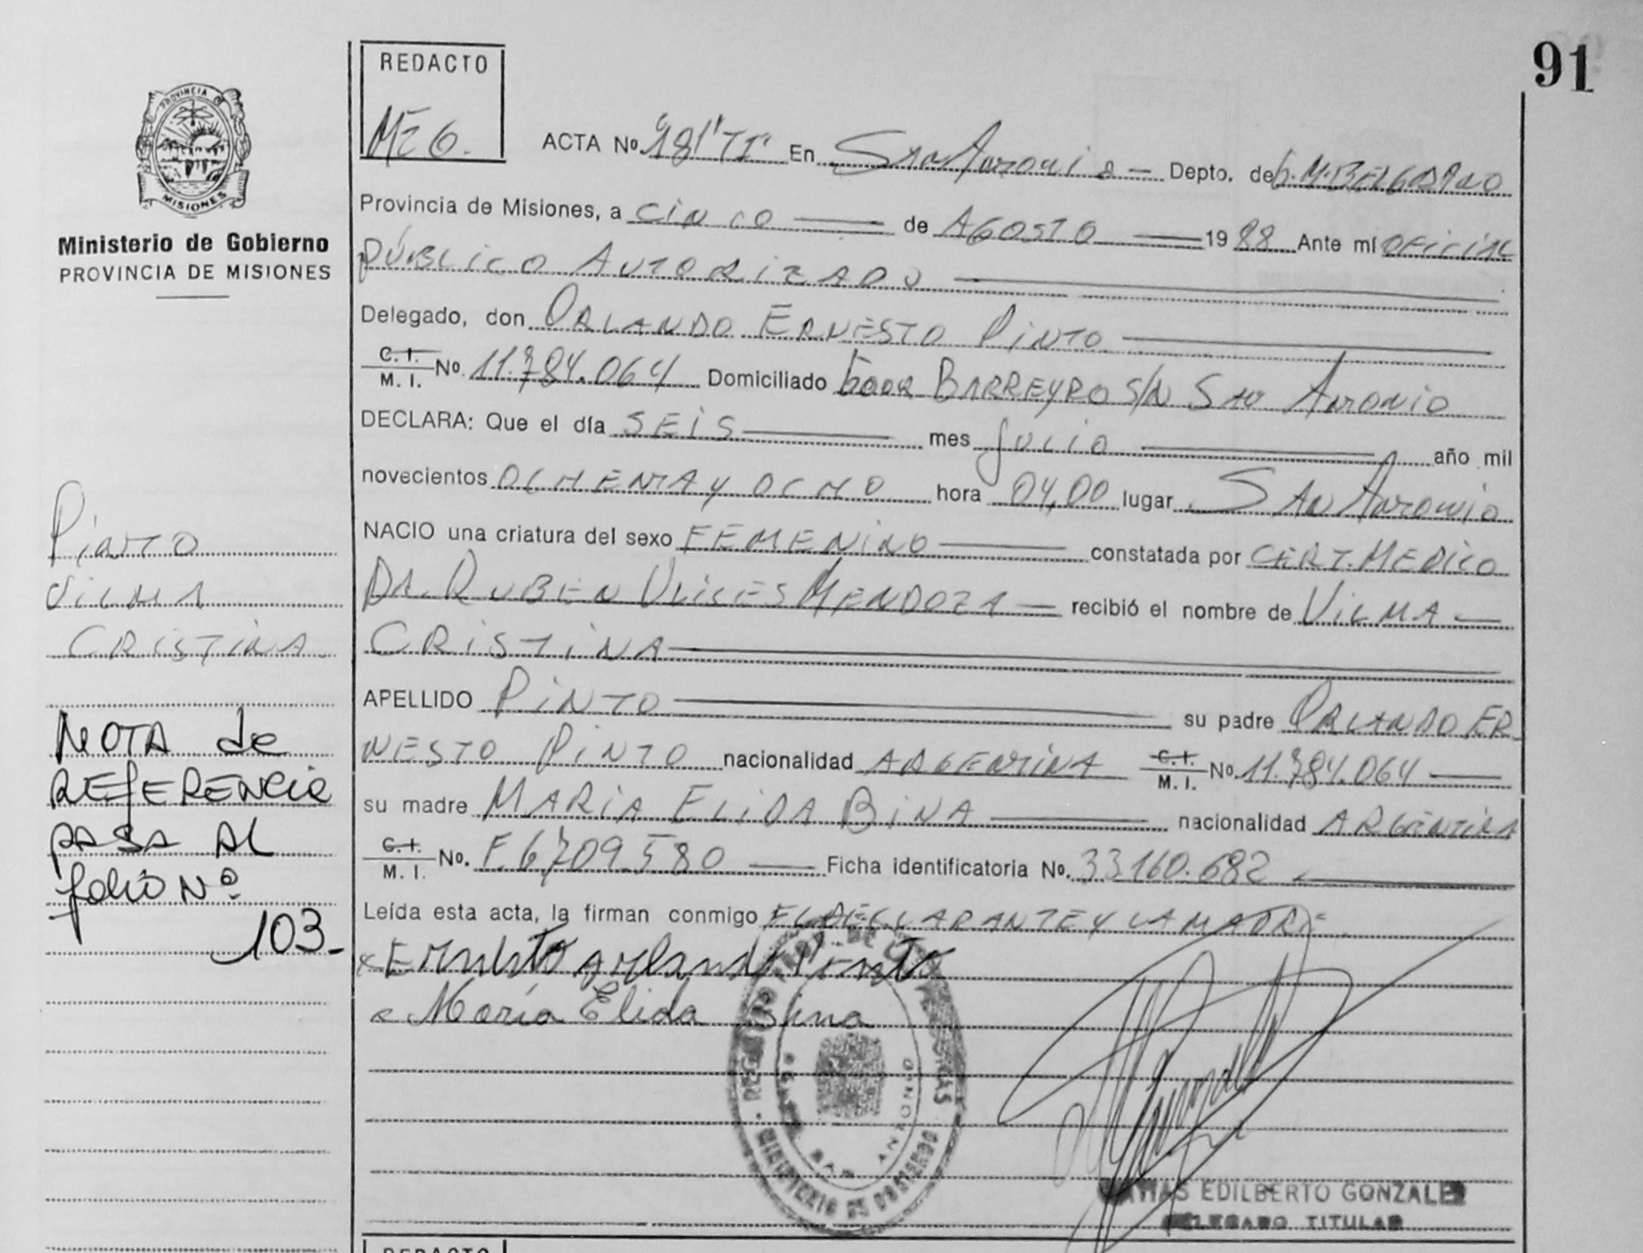 91
REDACTO
MEG.
PROVINCIA DE
MISIONES
Ministerio de Gobierno
PROVINCIA DE MISIONES
ACTA Nº "181" "TI" En San Antonio — Depto. de G.M. BELGRANO
Provincia de Misiones, a CINCO — de AGOSTO — 1988 Ante mí OFICIAL
PÚBLICO AUTORIZADO —
Delegado, don ORLANDO ERNESTO PINTO —
C. I. / M. I. No. 11.784.064 Domiciliado BARREYRO S/N San Antonio
DECLARA: Que el día SEIS — mes Julio — año mil
novecientos OCHENTA y OCHO hora 04,00 lugar San Antonio
NACIO una criatura del sexo FEMENINO — constatada por CERT. MEDICO
DR. RUBEN ULICES MENDOZA — recibió el nombre de VILMA —
CRISTINA —
APELLIDO PINTO — su padre ORLANDO ER-
NESTO PINTO nacionalidad ARGENTINA C. I. / M. I. No. 11.784.064 —
su madre MARIA ELIDA BINA — nacionalidad ARGENTINA
C. I. / M. I. No. F.6709.580 — Ficha identificatoria No. 33.160.682 —
Leída esta acta, la firman conmigo EL DECLARANTE Y LA MADRE
x Ernesto Orlando Pinto
x María Elida Bina
PINTO
VILMA
CRISTINA.
NOTA de
REFERENCIA
PASA AL
folio Nº
103-
REGISTRO DE LAS PERSONAS
SAN ANTONIO
MINISTERIO DE GOBIERNO
MATIAS EDILBERTO GONZALEZ
DELEGADO TITULAR
REDACTO